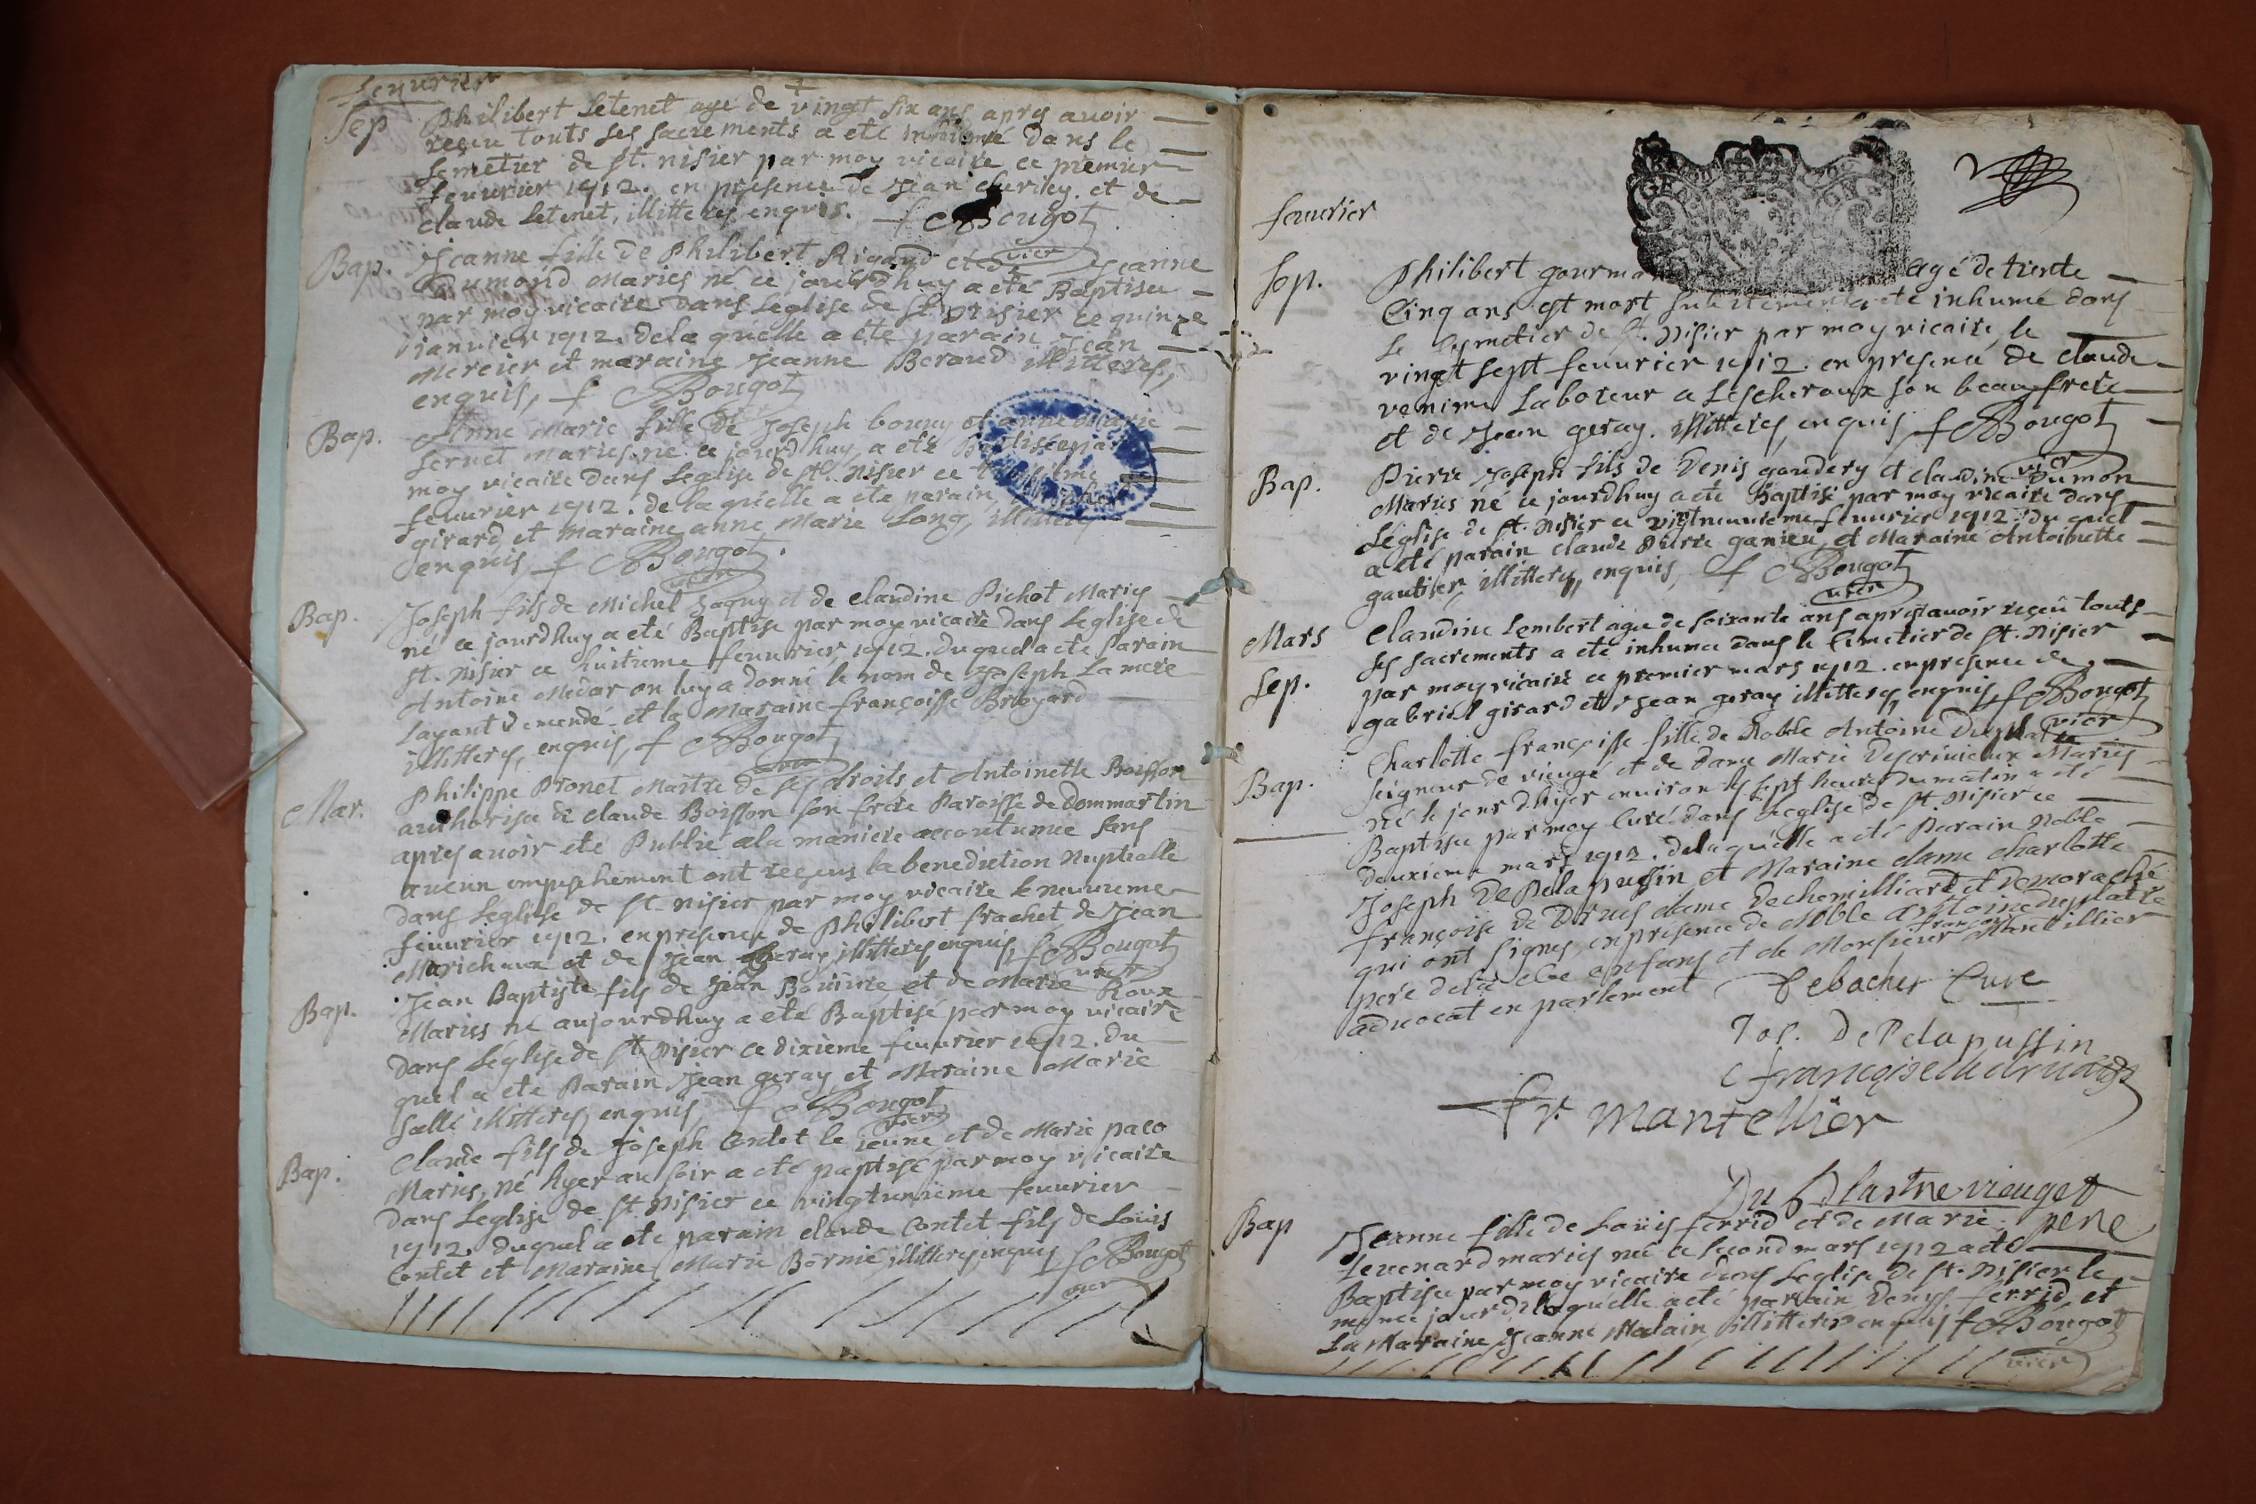 feuurier
Sep Philibert Letenet agé de vingt six ans apres auoir
reçeu touts ses sacrements a eté inhumé dans le
semetier de st. nisier par moy vicaire ce premier
feuurier 1912. en presence de Jean et de
claude Letenet, illitteres enquis. f Bougot
vier
Bap. Jeanne fille de Philibert Rigaud et Jeanne
Dumond Maries né ce jourdhuy a eté Baptisee
par moy vicaire dans Leglise de st. nisier ce quinze
ianuier 1912. de la quelle a ete parain Jean
Mercier et maraine Jeanne Beraud illitteres,
enquis, f Bougot
Bap. Anne Marie fille de Joseph bouuy et anne Marie
seruet maries né ce jourdhuy, a eté Baptisée par
moy vicaire dans Leglise de st. nisier ce
feuurier 1912. de la quelle a ete parain,
girard et maraine anne Marie Long, illitteres
enquis, f Bougot.
vier
Bap. Joseph fils de Michel Jaquy et de claudine Pichot Maries
né ce jourdhuy a eté Baptise par moy vicaire dans Leglise de
st. nisier ce huitieme feuurier, 1912. duquel a ete Parain
Antoine Medar on luy a donné le nom de Joseph La mere
Layant demandé et la Maraine françoisse Broyard
illitteres, enquis, f Bougot
vier
Mar. Philippe Pronet Maitre de ses droits et Antoinette Boisson
authorisée de claude Boisson son frere Paroisse de Dommartin
apres auoir eté Publié ala maniere accoutumee sans
aucun empeschement ont reçeus la benediction nuptialle
dans Leglise de st. nisier par moy vicaire le neuuieme
feuurier 1912. en presence de Philibert frachet de Jean
Marichaux et de Jean geray illitteres enquis, f Bougot
vier
Bap. Jean Baptiste fils de Jean Bouuire et de Marie Roux
Maries né aujourdhuy a eté Baptisé par moy vicaire
dans Leglise de st. Nisier ce dixieme feuurier 1912. du
quel a ete Parain Jean geray et Maraine Marie
Salle illitteres, enquis f Bougot
vier
Bap. Claude fils de Joseph Contet le jeune et de Marie paco
Maries, né hyer au soir a eté paptisé par moy vicaire
dans Leglise de st. Nisier ce vingtunieme feuurier
1912. duquel a ete parain claude Contet fils de Loüis
Contet et Maraine Marie Bornié, illitteres enquis f Bougot
vier
feuurier
Sep. Philibert agé de trente
Cinq ans est mort subitement a eté inhumé dans
Le Cymetier de st. Nisier par moy vicaire, le
vingt sept feuurier 1912. en presence de claude
venime Laboreur a Lescheroux son beau frere
et de Jean geray. illitteres, enquis, f Bougot
vier
Bap. Pierre Joseph fils de Denis gaudery et claudine Dumon
Maries né ce jourdhuy a eté Baptisé par moy vicaire dans
Leglise de st. Nisier ce vintneuuieme feuurier 1912. du quel
a eté parain claude Pierre ganieu, et Maraine Antoinette
gautier, illitteres, enquis, f Bougot
vier
Mars
Sep. Claudine Lembert agée de soixante ans apres auoir reçeu touts
ses sacrements a eté inhumee dans le Cimetier de st. nisier
par moy vicaire ce premier mars 1912. en presence de
gabriel girard et Jean geray illitteres, enquis, f Bougot
vier
Bap. Charlotte françoisse fille de Noble Antoine Duplatre
seigneur de vieugé et de dame Marie Descriuieux Maries
né le jour dhyer enuiron les sept heures du matin a eté
Baptisee par moy Curé dans Leglise de st. Nisier ce
deuxieme mars 1912. de la quelle a eté Parain noble
Joseph De Pelapussin et Maraine dame charlotte
françoise de Druas dame Dechomilliard et Demoraché
qui ont signes, en presence de Noble Antoine duplatre
pere de la dte enfans et de Monsieur françois Mantillier
aduocat en parlement Debacher Cure
Jos. DePelapussin
françoise de druas
fr. Mantellier
Du Plastre vieuget
pere
Bap Jeanne fille de Loüis ferrid et de Marie
Leuenard maries né ce second mars 1912 a eté
Baptisee par moy vicaire dans Leglise de st. Nisier le
meme jour de laquelle a eté parain Denys ferrid, et
La Maraine Jeanne Malain illitteres enquis f Bougot
vier